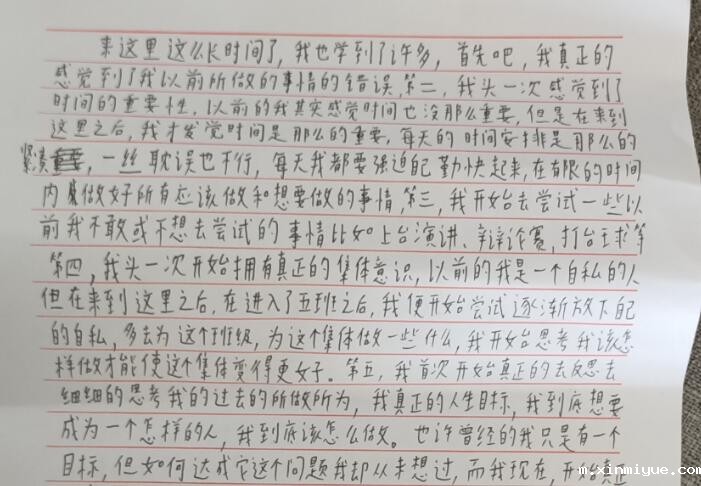 来这里这么长时间了，我也学到了许多，首先吧，我真正的
感觉到了我以前所做的事情的错误，第二，我头一次感觉到了
时间的重要性，以前的我其实感觉时间也没那么重要，但是在来到
这里之后，我才发觉时间是那么的重要，每天的时间安排是那么的
紧凑，一丝耽误也不行，每天我都要强迫自己勤快起来，在有限的时间
内做好所有应该做和想要做的事情，第三，我开始去尝试一些以
前我不敢或不想去尝试的事情比如上台演讲、辩论赛，打台球等
第四，我头一次开始拥有真正的集体意识，以前的我是一个自私的人
但在来到这里之后，在进入了五班之后，我便开始尝试逐渐放下自己
的自私，多去为这个班级，为这个集体做一些什么，我开始思考我该怎
样做才能使这个集体变得更好。第五，我首次开始真正的去反思去
细细的思考我的过去的所做所为，我真正的人生目标，我到底想要
成为一个怎样的人，我到底该怎么做。也许曾经的我只是有一个
目标，但如何达成它这个问题我却从未想过，而我现在，开始真正
m.xinmiyue.com